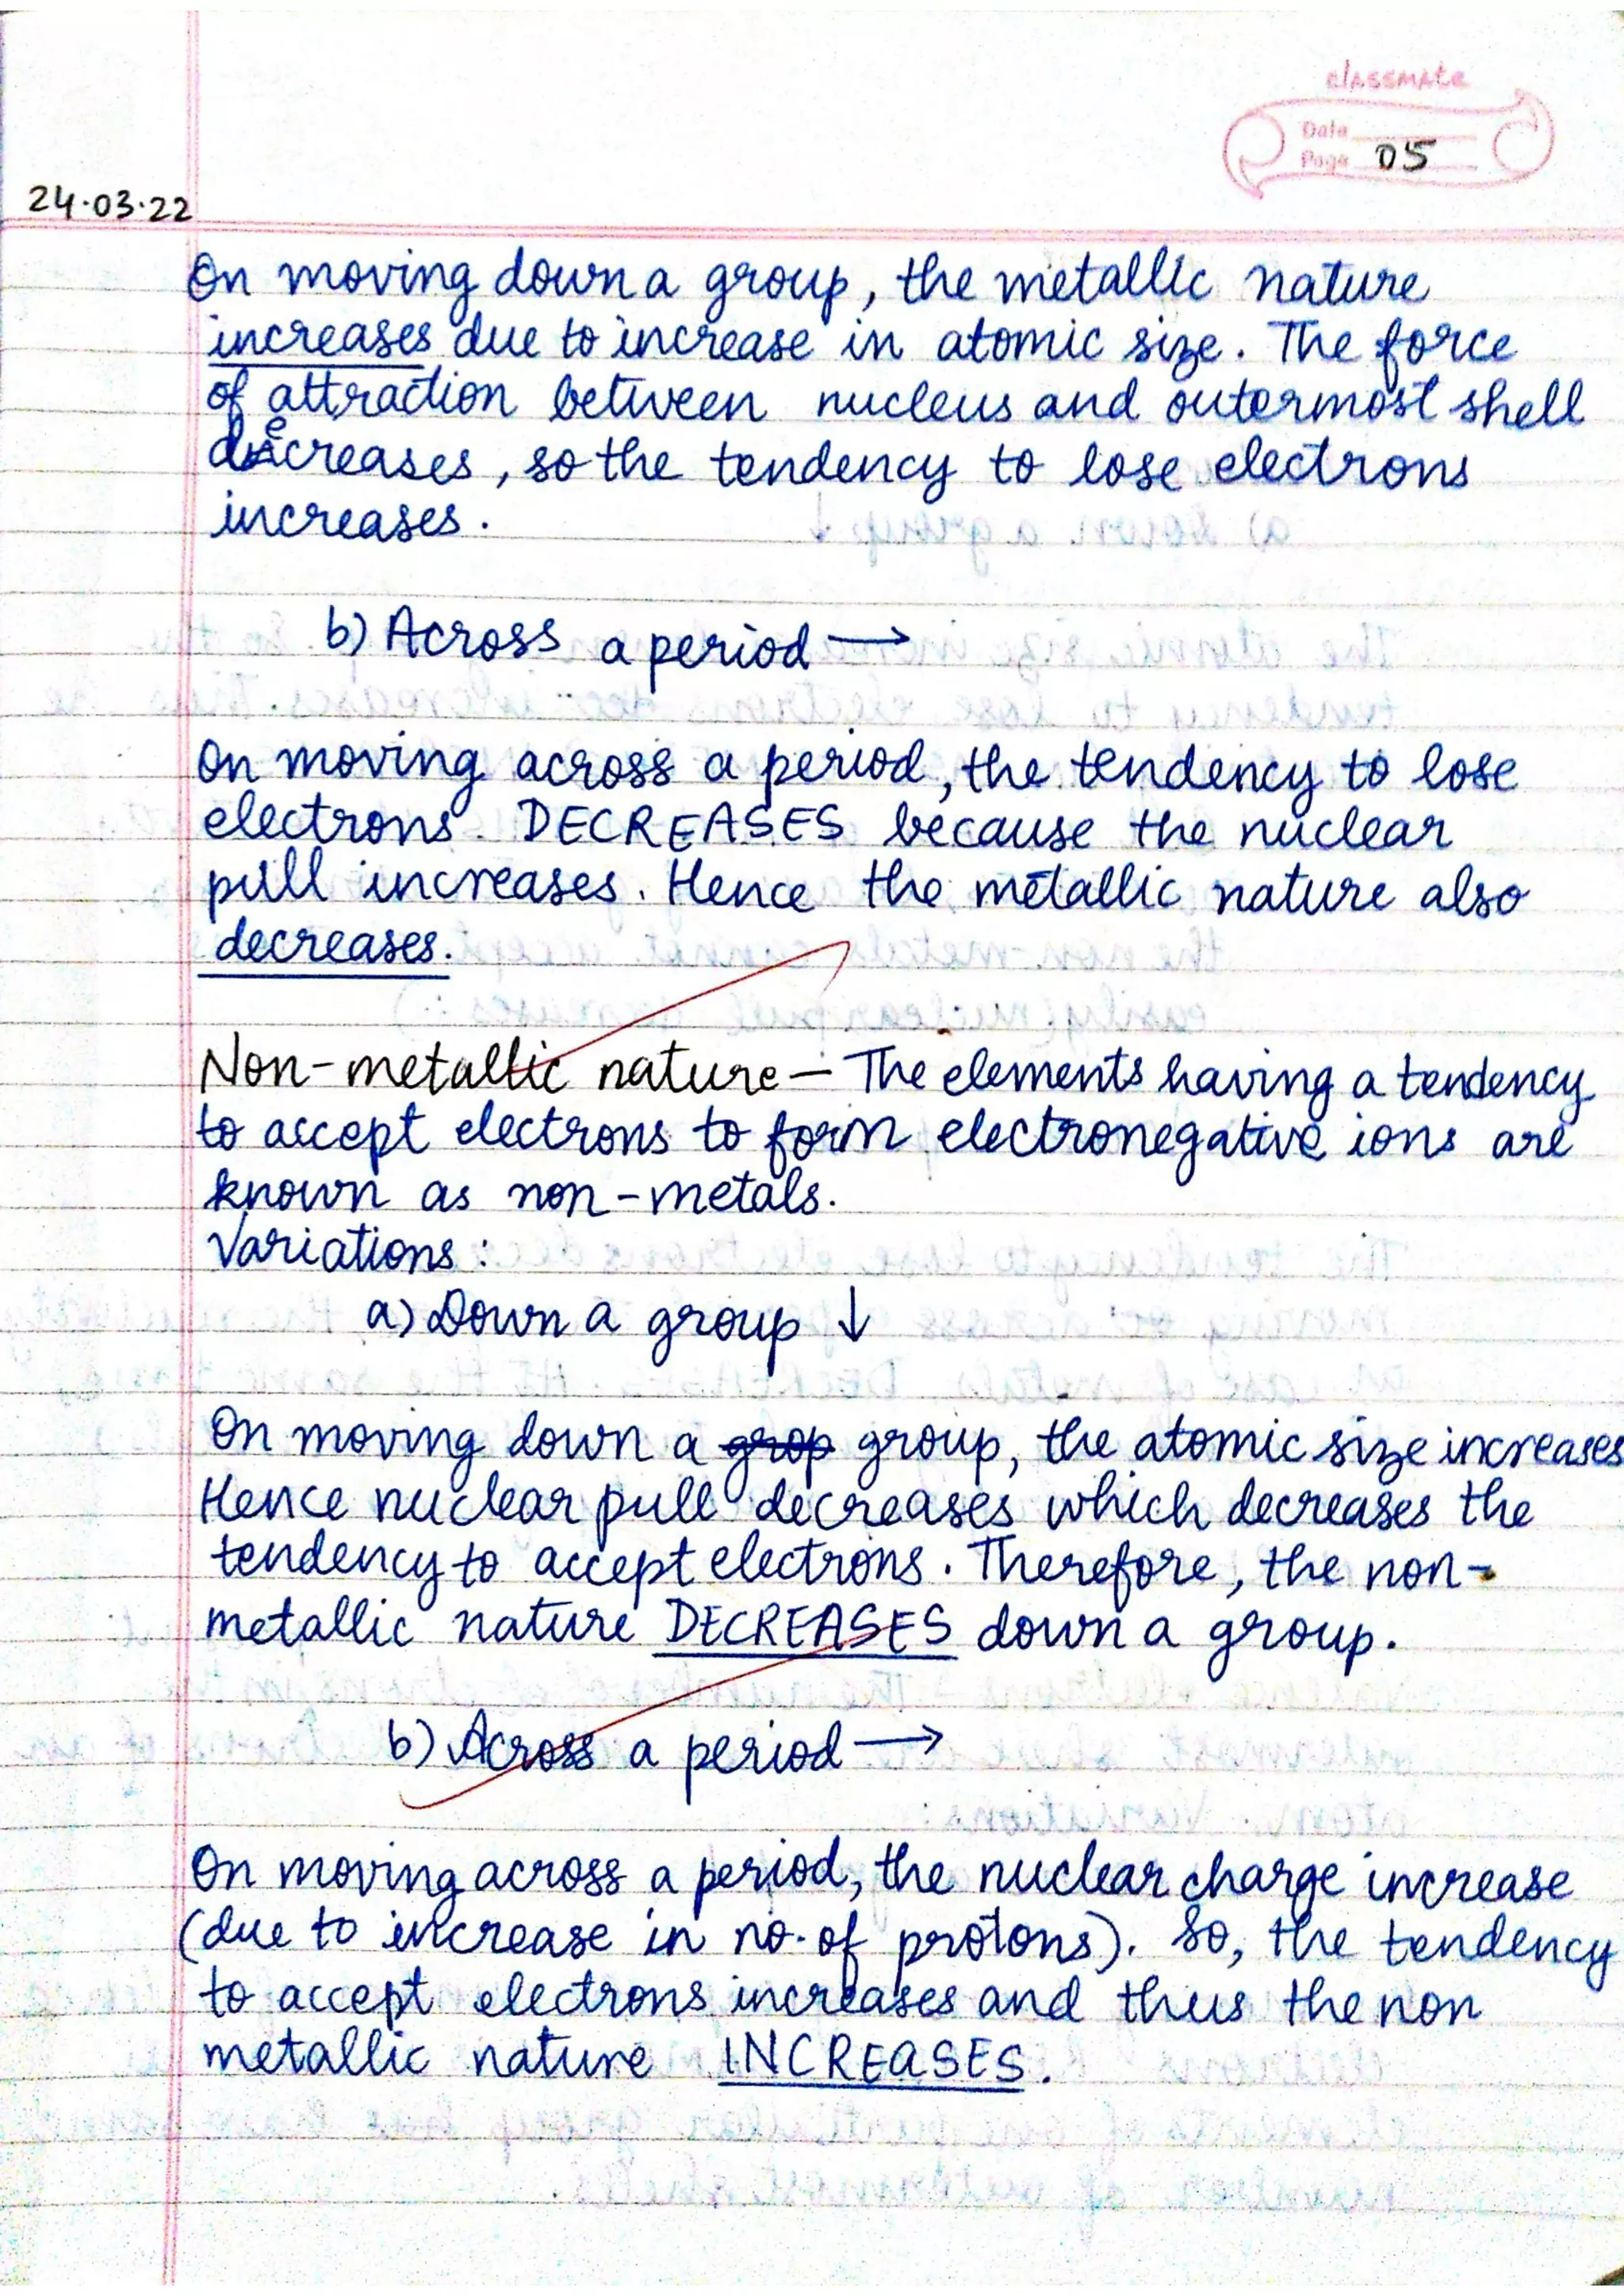 classmate
Date
Page 05
24.03.22
On moving down a group, the metallic nature
increases due to increase in atomic size. The force
of attraction between nucleus and outermost shell
decreases, so the tendency to lose electrons
increases.
b) Across a period →
On moving across a period, the tendency to lose
electrons DECREASES because the nuclear
pull increases. Hence the metallic nature also
decreases.
Non-metallic nature – The elements having a tendency
to accept electrons to form electronegative ions are
known as non-metals.
Variations:
a) Down a group ↓
On moving down a grop group, the atomic size increases
Hence nuclear pull decreases which decreases the
tendency to accept electrons. Therefore, the non-
metallic nature DECREASES down a group.
b) Across a period →
On moving across a period, the nuclear charge increase
(due to increase in no. of protons). So, the tendency
to accept electrons increases and thus the non
metallic nature INCREASES.